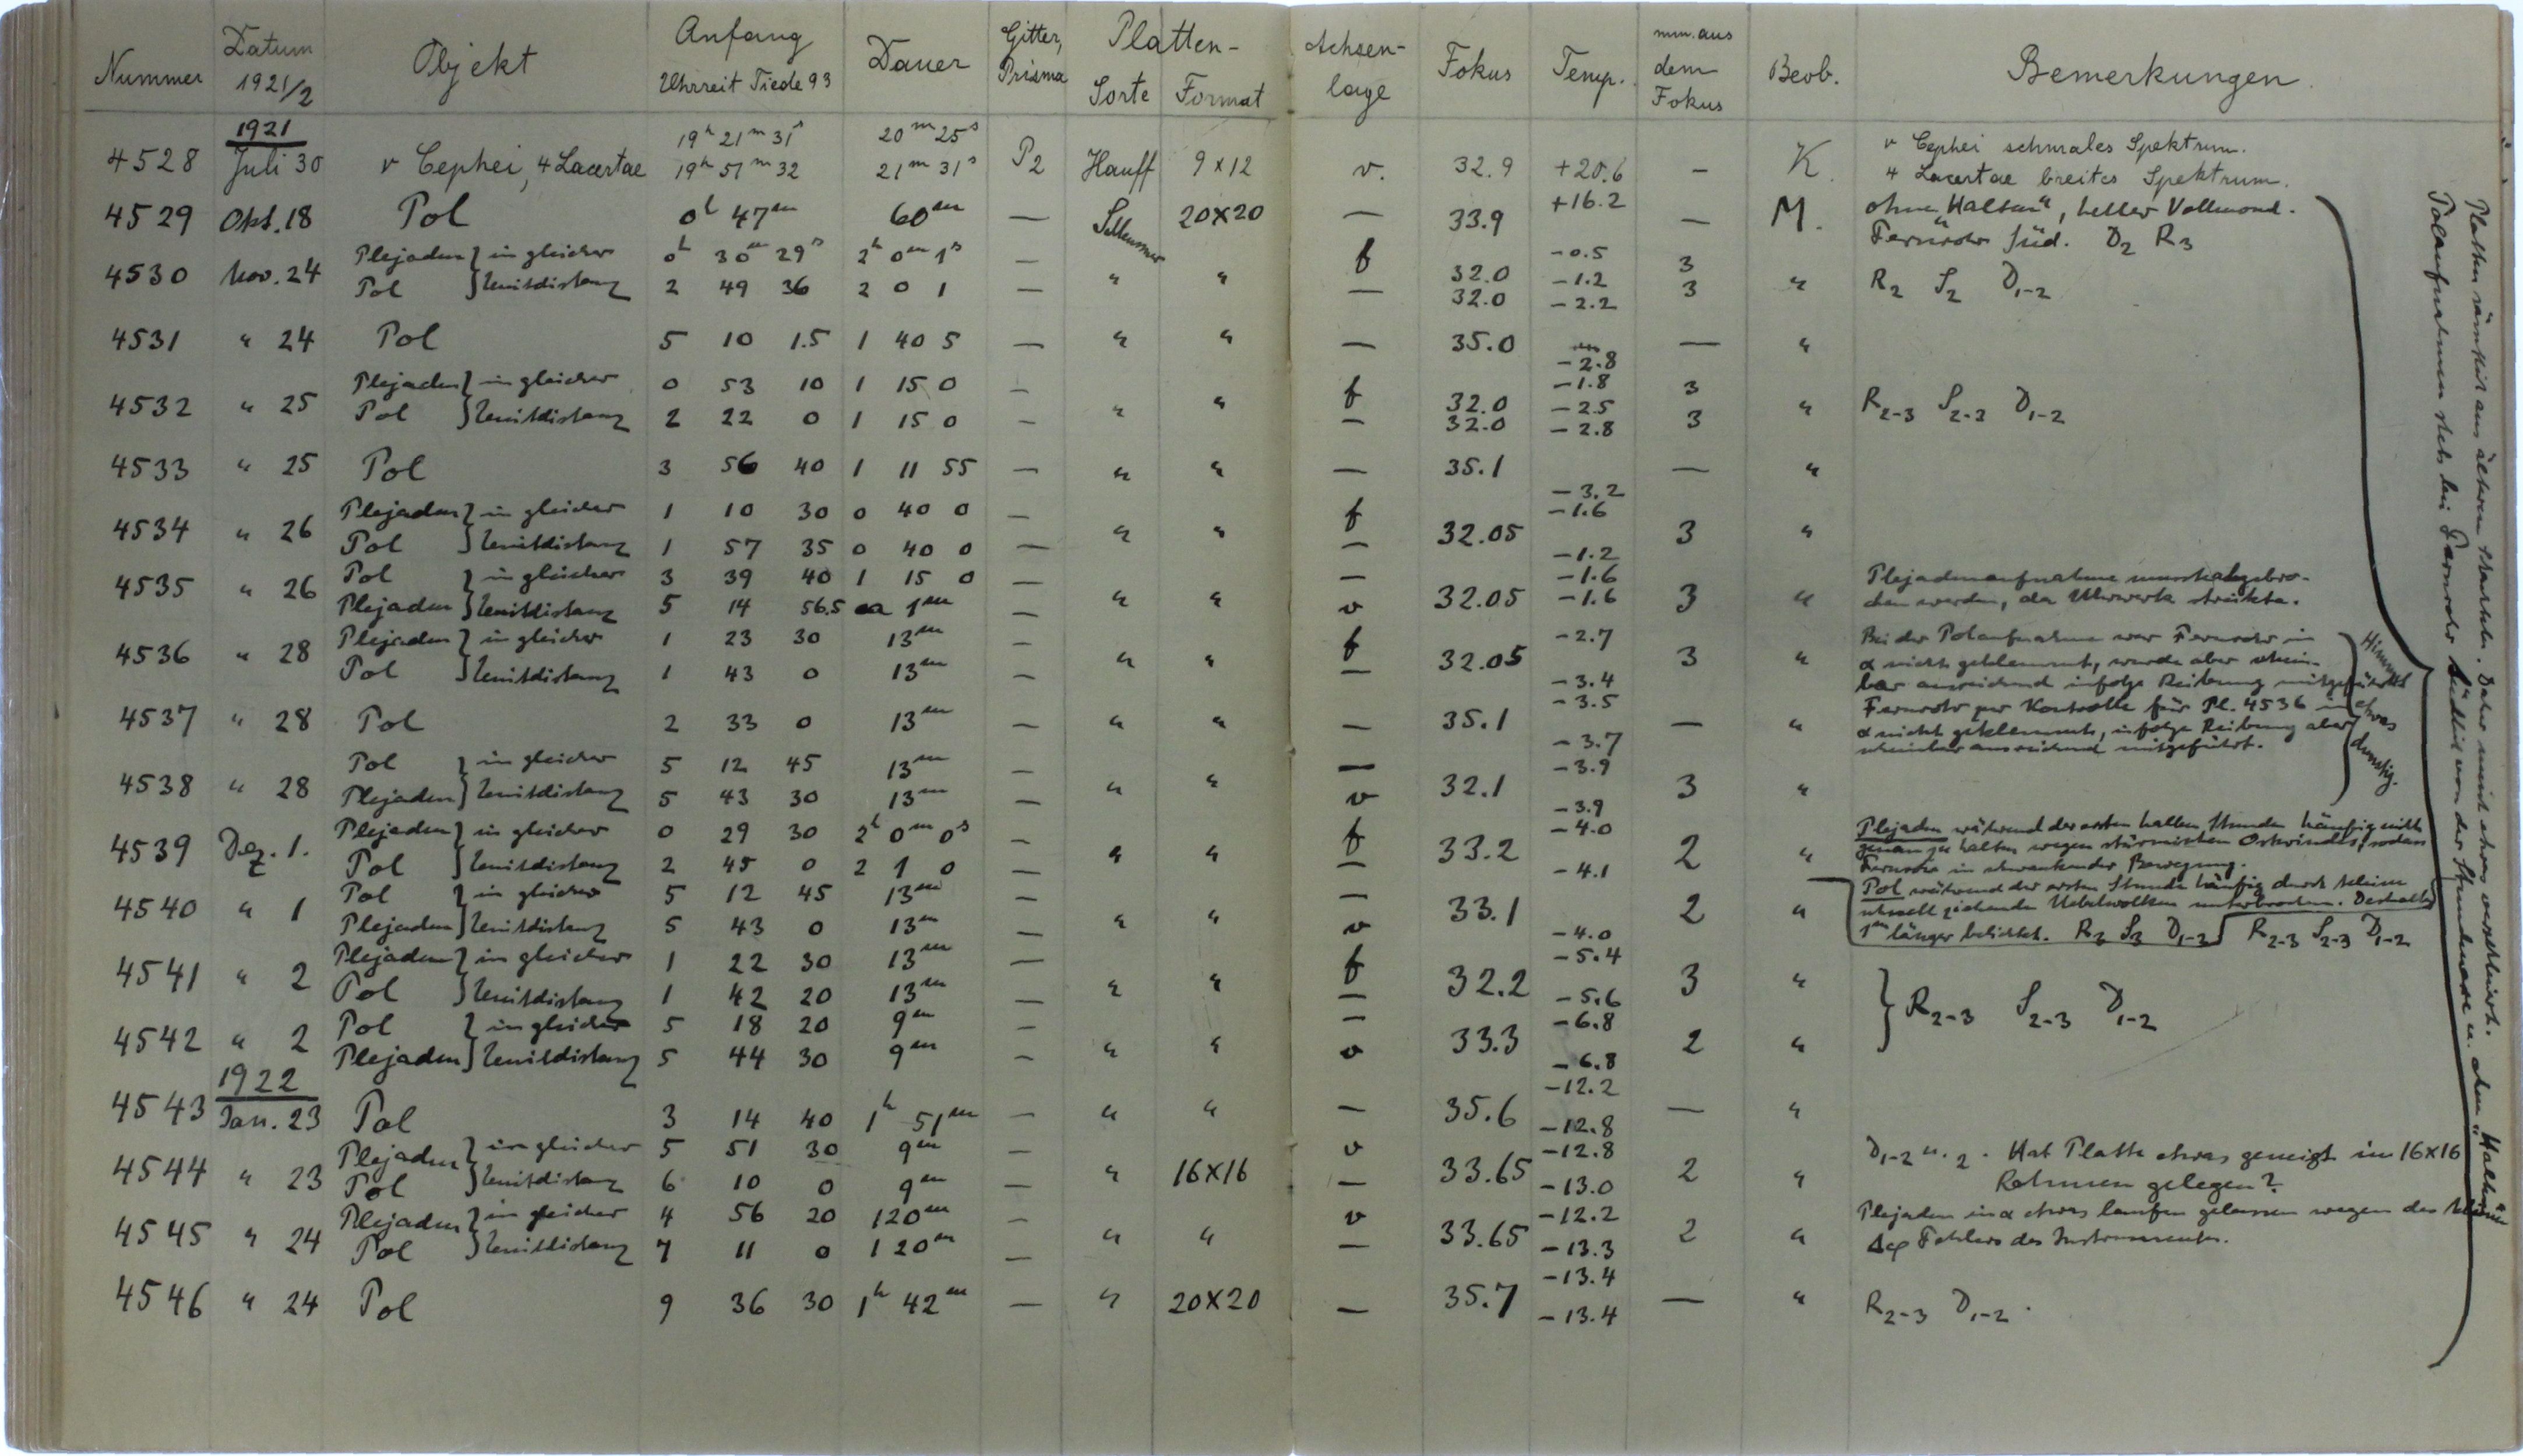 Nummer Datum 1921/2 Objekt Anfang Uhrzeit Tiede 93 Dauer Gitter, Prisma Platten- Sorte Format Achsen- lage Fokus Temp. mm. aus dem Fokus Beob. Bemerkungen.
1921
19h 21m 31s 20m 25s ν Cephei schmales Spektrum.
4528 Juli 30 ν Cephei, 4 Lacertae 19h 51m 32 21m 31s P2 Hauff 9x12 v. 32.9 +20.6 — K. 4 Lacertae breites Spektrum.
4529 Okt. 18 Pol 0h 47m 60m — 20x20 — 33.9 +16.2 — M. ohne "Halten", heller Vollmond.
Fernrohr Süd. D2 R3
4530 Nov. 24 Plejaden } in gleicher 0h 30m 29s 2h 0m 1s — " " f 32.0 -0.5 -1.2 3 " R2 S2 D1-2
Pol } Zenitdistanz 2 49 36 2 0 1 — — 32.0 -2.2 3
4531 " 24 Pol 5 10 1.5 1 40 5 — " " — 35.0 -2.8 — "
4532 " 25 Plejaden } in gleicher 0 53 10 1 15 0 — " " f 32.0 -1.8 -2.5 3 " R2-3 S2-3 D1-2
Pol } Zenitdistanz 2 22 0 1 15 0 — — 32.0 -2.8 3
4533 " 25 Pol 3 56 40 1 11 55 — " " — 35.1 -3.2 — "
4534 " 26 Plejaden } in gleicher 1 10 30 0 40 0 — " " f 32.05 -1.6 3 "
Pol } Zenitdistanz 1 57 35 0 40 0 — — -1.2
4535 " 26 Pol } in gleicher 3 39 40 1 15 0 — " " — 32.05 -1.6 3 " Plejadenaufnahme musste abgebro-
Plejaden } Zenitdistanz 5 14 56.5 ca 1m — v -1.6 chen werden, da Uhrwerk streikte.
4536 " 28 Plejaden } in gleicher 1 23 30 13m — " " f 32.05 -2.7 3 " Bei der Polaufnahme war Fernrohr in
Pol } Zenitdistanz 1 43 0 13m — — -3.4 α nicht geklemmt, wurde aber schein-
bar ausreichend infolge Reibung mitgeführt.
4537 " 28 Pol 2 33 0 13m — " " — 35.1 -3.5 -3.7 — " Fernrohr zur Kontrolle für Pl. 4536 in
α nicht geklemmt, infolge Reibung aber
scheinbar ausreichend mitgeführt.
Himmel
etwas
dunstig.
4538 " 28 Pol } in gleicher 5 12 45 13m — " " — 32.1 -3.9 3 "
Plejaden } Zenitdistanz 5 43 30 13m — v -3.9
4539 Dez. 1. Plejaden } in gleicher 0 29 30 2h 0m 0s — " " f 33.2 -4.0 2 " Plejaden während der ersten halben Stunde häufig nicht
Pol } Zenitdistanz 2 45 0 2 1 0 — — -4.1 genau zu halten wegen stürmischen Ostwindes, sodass
Fernrohr in schwankender Bewegung.
4540 " 1 Pol } in gleicher 5 12 45 13m — " " — 33.1 2 " Pol während der ersten Stunde häufig durch kleine
Plejaden } Zenitdistanz 5 43 0 13m — v -4.0 schnell ziehende Nebelwolken unterbrochen. Deshalb
1m länger belichtet. R3 S3 D1-2 R2-3 S2-3 D1-2
4541 " 2 Plejaden } in gleicher 1 22 30 13m — " " f 32.2 -5.4 3 "
Pol } Zenitdistanz 1 42 20 13m — — -5.6 } R2-3 S2-3 D1-2
4542 " 2 Pol } in gleicher 5 18 20 9m — " " — 33.3 -6.8 2 "
Plejaden } Zenitdistanz 5 44 30 9m — v -6.8
1922
4543 Jan. 23 Pol 3 14 40 1h 51m — " " — 35.6 -12.2 -12.8 — "
4544 " 23 Plejaden } in gleicher 5 51 30 9m — " 16x16 v 33.65 -12.8 2 " D1-2 u. 2. Hat Platte etwas geneigt im 16x16
Pol } Zenitdistanz 6 10 0 9m — — -13.0 Rahmen gelegen?
4545 " 24 Plejaden } in gleicher 4 56 20 120m — " " v 33.65 -12.2 2 " Plejaden in α etwas laufen gelassen wegen des kleinen
Pol } Zenitdistanz 7 11 0 120m — — -13.3 Δφ Fehlers des Instruments.
4546 " 24 Pol 9 36 30 1h 42m — " 20x20 — 35.7 -13.4 -13.4 — " R2-3 D1-2.
Platten sämtlich aus älteren Schachteln. Daher meist etwas verschleiert.
Polaufnahmen stets bei Fernrohr südlich von der Stundenaxe u. ohne "Halten"